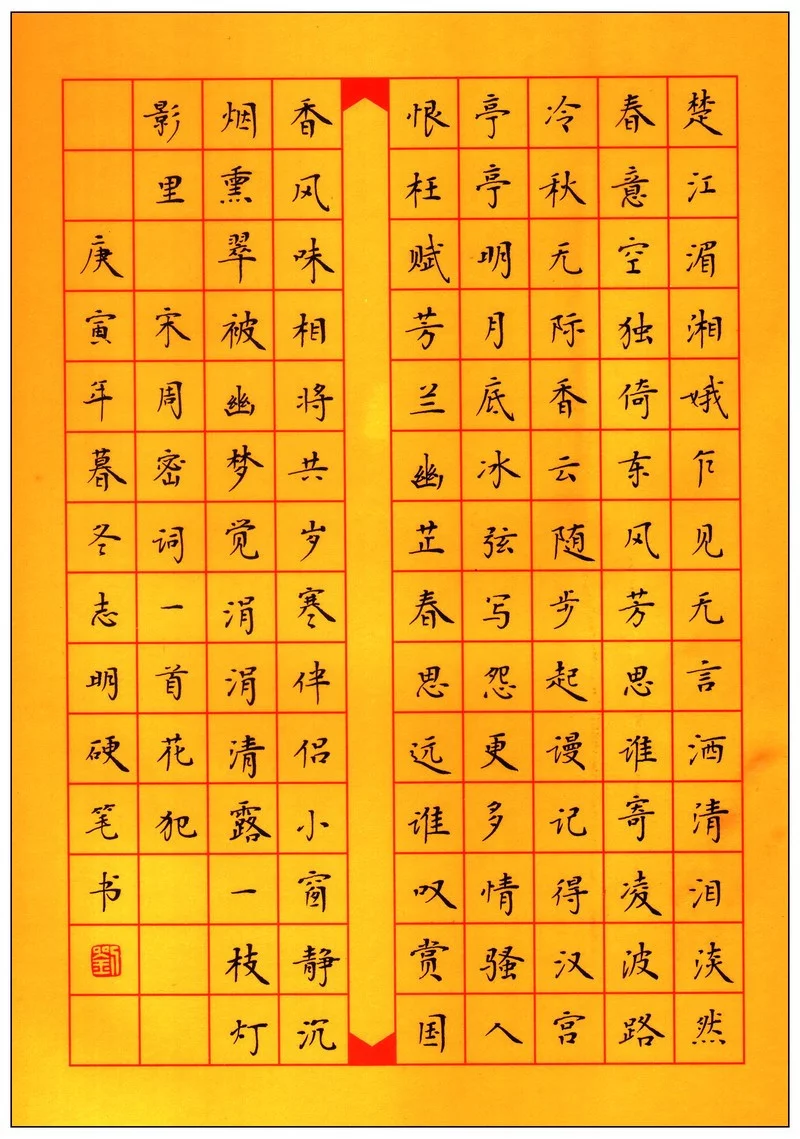 楚江湄湘娥乍见无言洒清泪淡然
春意空独倚东风芳思谁寄凌波路
冷秋无际香云随步起谩记得汉宫
亭亭明月底冰弦写怨更多情骚人
恨枉赋芳兰幽芷春思远谁叹赏国
香风味相将共岁寒伴侣小窗静沉
烟熏翠被幽梦觉涓涓清露一枝灯
影里
宋周密词一首花犯
庚寅年暮冬志明硬笔书
劉